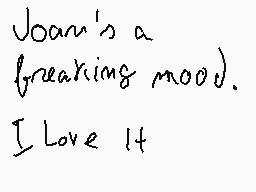 Joan's a
freaking mood.
I Love It